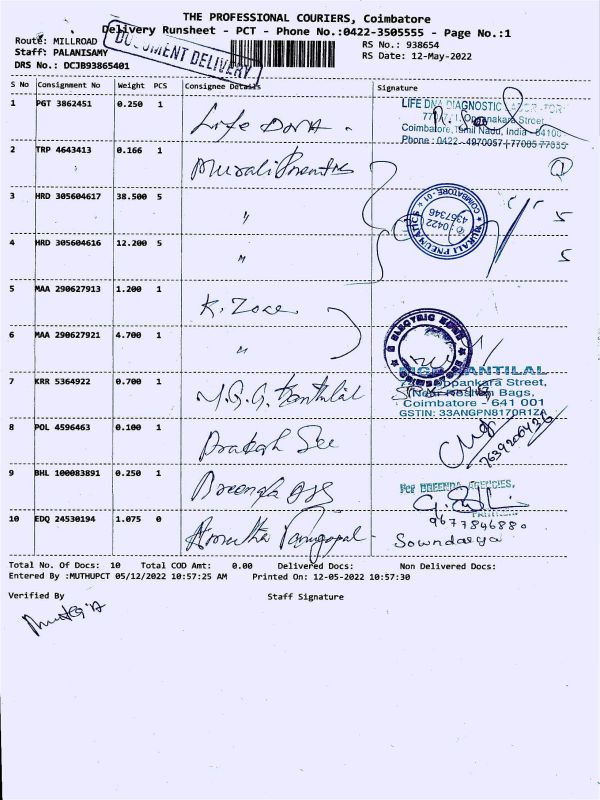 THE PROFESSIONAL COURIERS, Coimbatore
Delivery Runsheet - PCT - Phone No.:0422-3505555 - Page No.:1
Route: MILLROAD
RS No.: 938654
Staff: PALANISAMY
RS Date: 12-May-2022
DRS No.: DCJB93865401
DOCUMENT DELIVERY
S No Consignment No Weight PCS Consignee Details Signature
1 PGT 3862451 0.250 1
LIFE DNA DIAGNOSTIC
Coimbatore, Tamil Nadu, India
2 TRP 4643413 0.166 1 Murali
3 HRD 305604617 38.500 5 " 5
MURALI PNEUMATICS COIMBATORE - 01. 0422 4367346
4 HRD 305604616 12.200 5 " 5
5 MAA 290627913 1.200 1 K. Zone
6 MAA 290627921 4.700 1 "
ELECTRIC
7 KRR 5364922 0.700 1 M.G.G. Kantilal
KANTILAL
Oppankara Street,
Bags,
Coimbatore - 641 001
GSTIN: 33ANGPN8170R1ZA
8 POL 4596463 0.100 1 Prakash
7639200436
9 BHL 100083891 0.250 1 Breenda
For BREENDA AGENCIES,
9677846880
10 EDQ 24530194 1.075 0 Amutha
Sowndarya
Total No. Of Docs: 10 Total COD Amt: 0.00 Delivered Docs: Non Delivered Docs:
Entered By :MUTHUPCT 05/12/2022 10:57:25 AM Printed On: 12-05-2022 10:57:30
Verified By Staff Signature